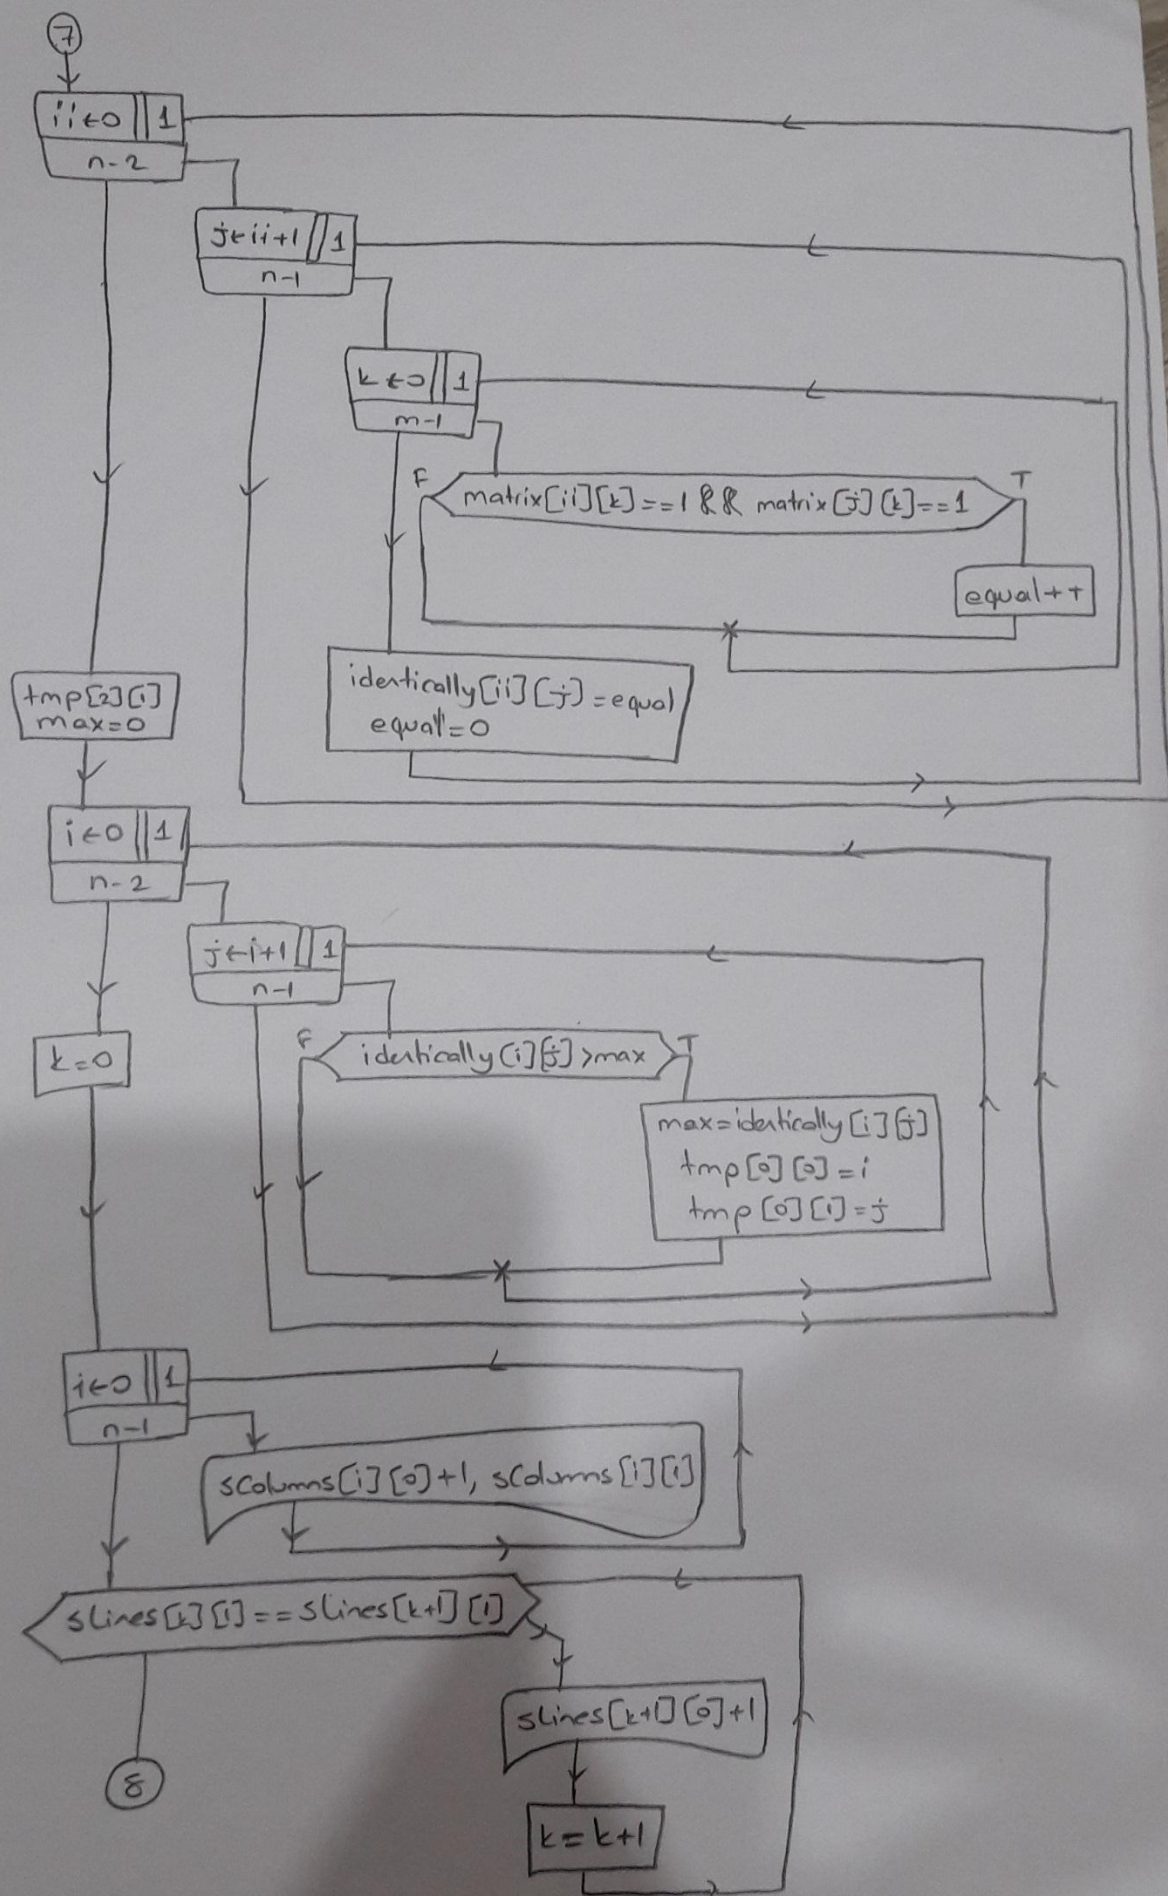 7
ii←0 1
n-2
j←ii+1 1
n-1
k←0 1
m-1
F T
matrix[ii][k]==1 && matrix[j][k]==1
equal++
identically[ii][j]=equal
equal=0
tmp[2][1]
max=0
i←0 1
n-2
j←i+1 1
n-1
k=0
F T
identically[i][j]>max
max=identically[i][j]
tmp[0][0]=i
tmp[0][1]=j
i←0 1
n-1
sColumns[i][0]+1, sColumns[i][1]
sLines[k][1]==sLines[k+1][1]
sLines[k+1][0]+1
8
k=k+1